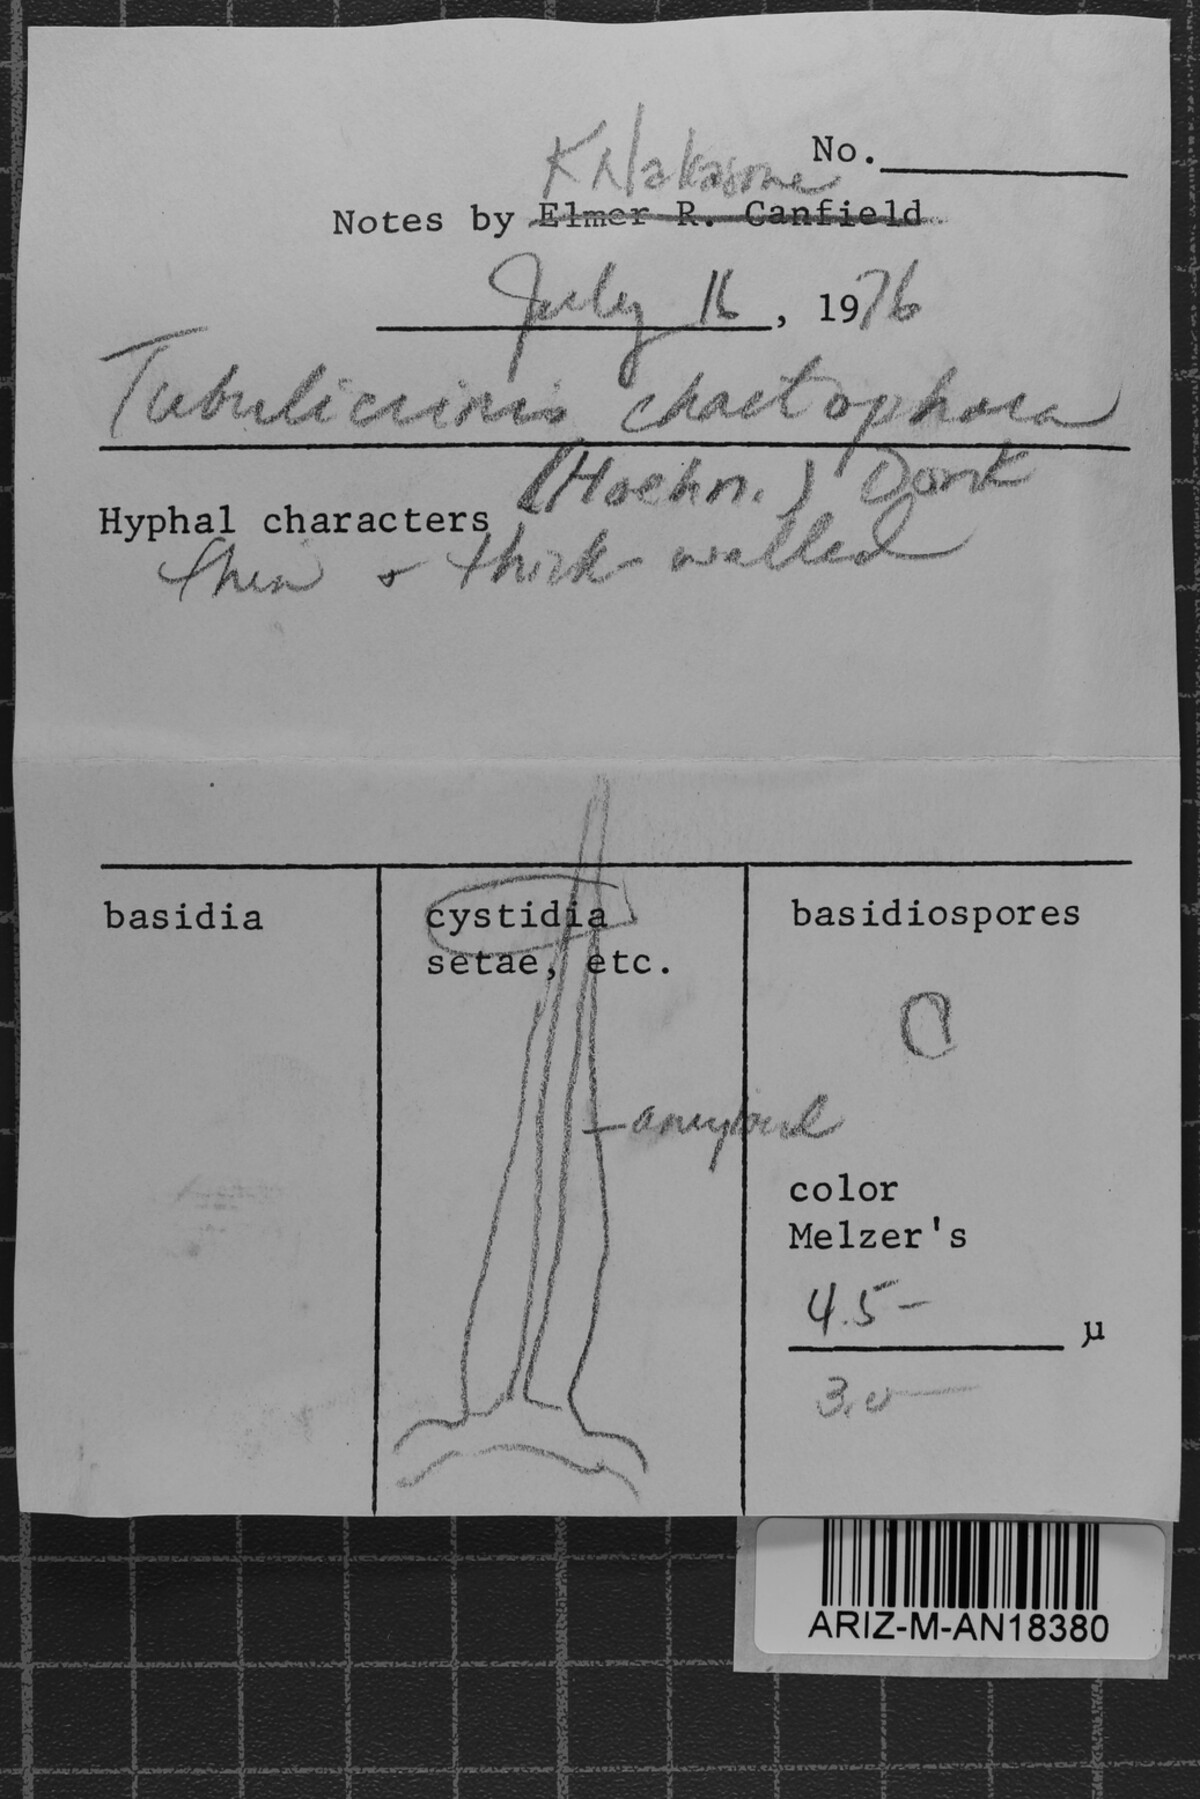 No.
K Nakasone
Notes by Elmer R. Canfield
July 16, 1976
Tubulicrinis chaetophora
(Hoehn.) Donk
Hyphal characters
thin & thick-walled
basidia
cystidia
setae, etc.
basidiospores
amyloid
color
Melzer's
4.5-
µ
3.0
ARIZ-M-AN18380